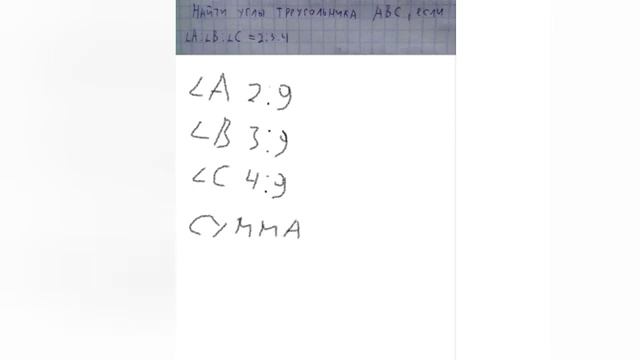 Найти углы треугольника ABC, если
∠A:∠B:∠C=2:3:4
∠A 2:9
∠B 3:9
∠C 4:9
СУММА